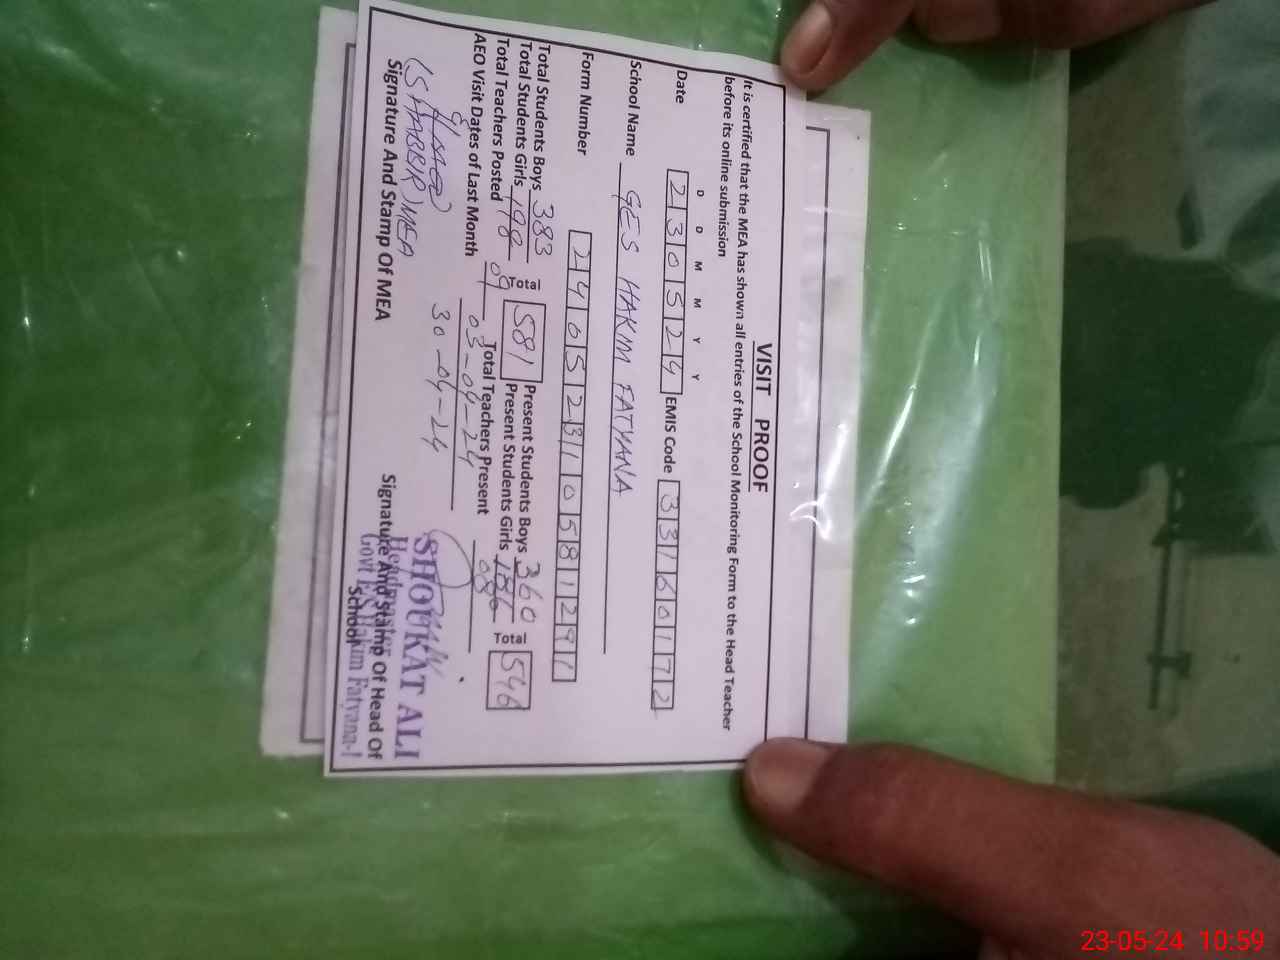 VISIT PROOF
It is certified that the MEA has shown all entries of the School Monitoring Form to the Head Teacher
before its online submission
D D M M Y Y
Date 230524 EMIS Code 33160172
School Name GES HAKIM FATYANA
Form Number 24052310581291
Total Students Boys 383 Present Students Boys 360
Total Students Girls 198 Total 581 Present Students Girls 186 Total 546
Total Teachers Posted 09 Total Teachers Present 08
AEO Visit Dates of Last Month 03-04-24
30-04-24
(SHABBIR) MEA
Signature And Stamp Of MEA
SHOUKAT ALI
Headmaster
Govt E/S Hakim Fatyana-I
Signature And Stamp Of Head Of
School
23-05-24 10:59